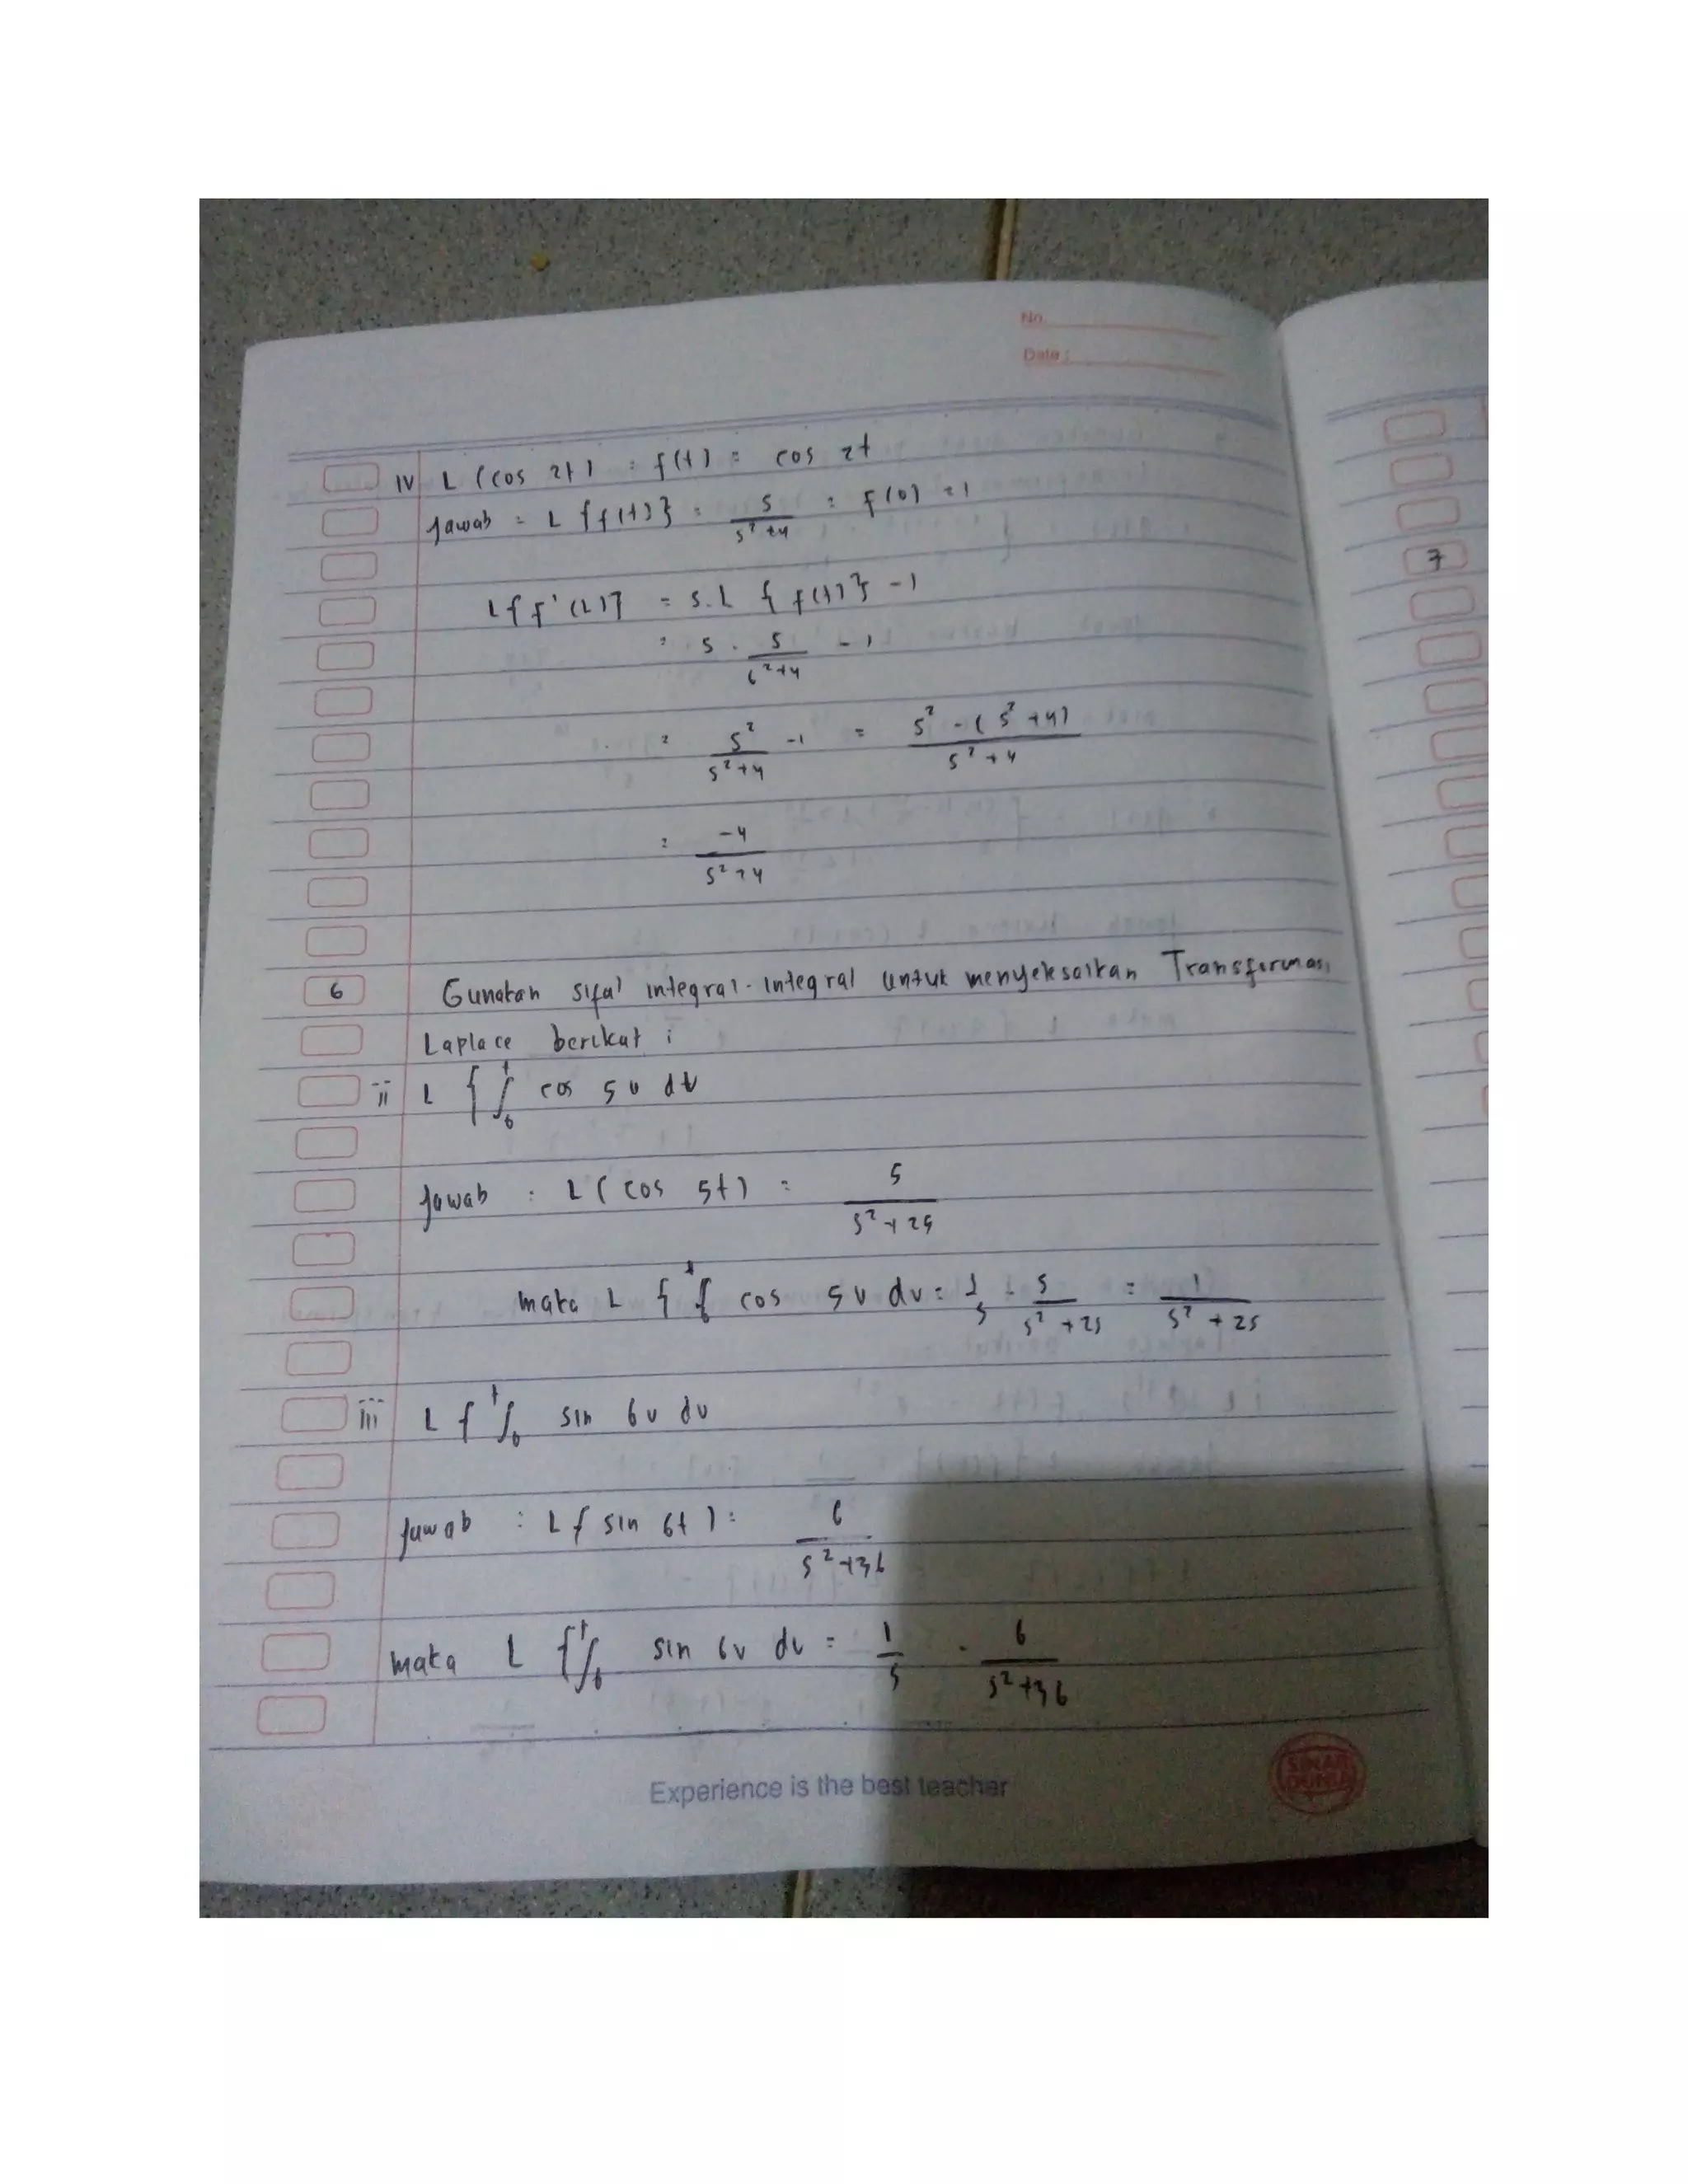 No.
Date :
IV L (cos 2t) : f(t) = cos 2t
Jawab = L {f(t)} = s/s²+4 : f(0) = 1
L{f'(L)} = s.L {f(t)} - 1
= s . s/s²+4 - 1
= s²/s²+4 -1 = s² - (s² +4)/s² + 4
= -4/s²+4
7
6 Gunakan sifat integral-integral untuk menyeleksaikan Transformasi
Laplace berikut ;
ii L {∫₀ᵗ cos 5v dv
Jawab : L ( cos 5t) = s/s²+25
maka L {∫₀ᵗ cos 5v dv = 1/s . s/s² +25 = 1/s² + 25
iii L {∫₀ᵗ sin 6v dv
Jawab : L { sin 6t ) = 6/s²+36
maka L {∫₀ᵗ sin 6v dv = 1/s . 6/s²+36
Experience is the best teacher
SINAR
DUNIA